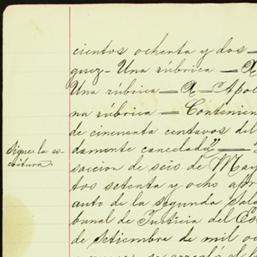 cientos ochenta y dos —
quez — Una rúbrica — A
Una rúbrica — A — Apol
na rúbrica — Contenien
de cincuenta centavos del
damente cancelado" —
Sigue la es-
critura.
saccion de seis de May
tos setenta y ocho apro
auto de la segunda Sala
bunal de Justicia del Es
de Setiembre de mil oc